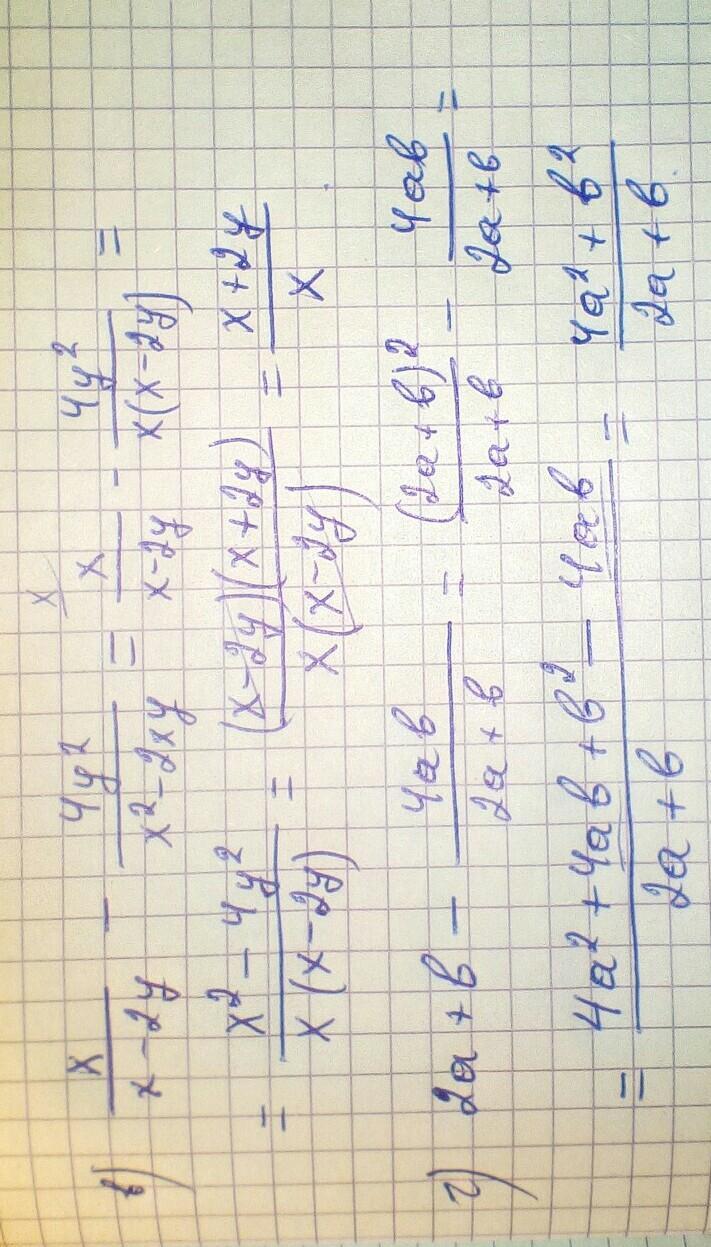 в) x/(x-2y) - 4y²/(x²-2xy) = x/(x-2y) ˣ/ - 4y²/(x(x-2y)) =
= (x²-4y²)/(x(x-2y)) = ((x-2y)(x+2y))/(x(x-2y)) = (x+2y)/x
г) 2a+b - 4ab/(2a+b) = (2a+b)²/(2a+b) - 4ab/(2a+b) =
= (4a²+4ab+b²-4ab)/(2a+b) = (4a²+b²)/(2a+b).